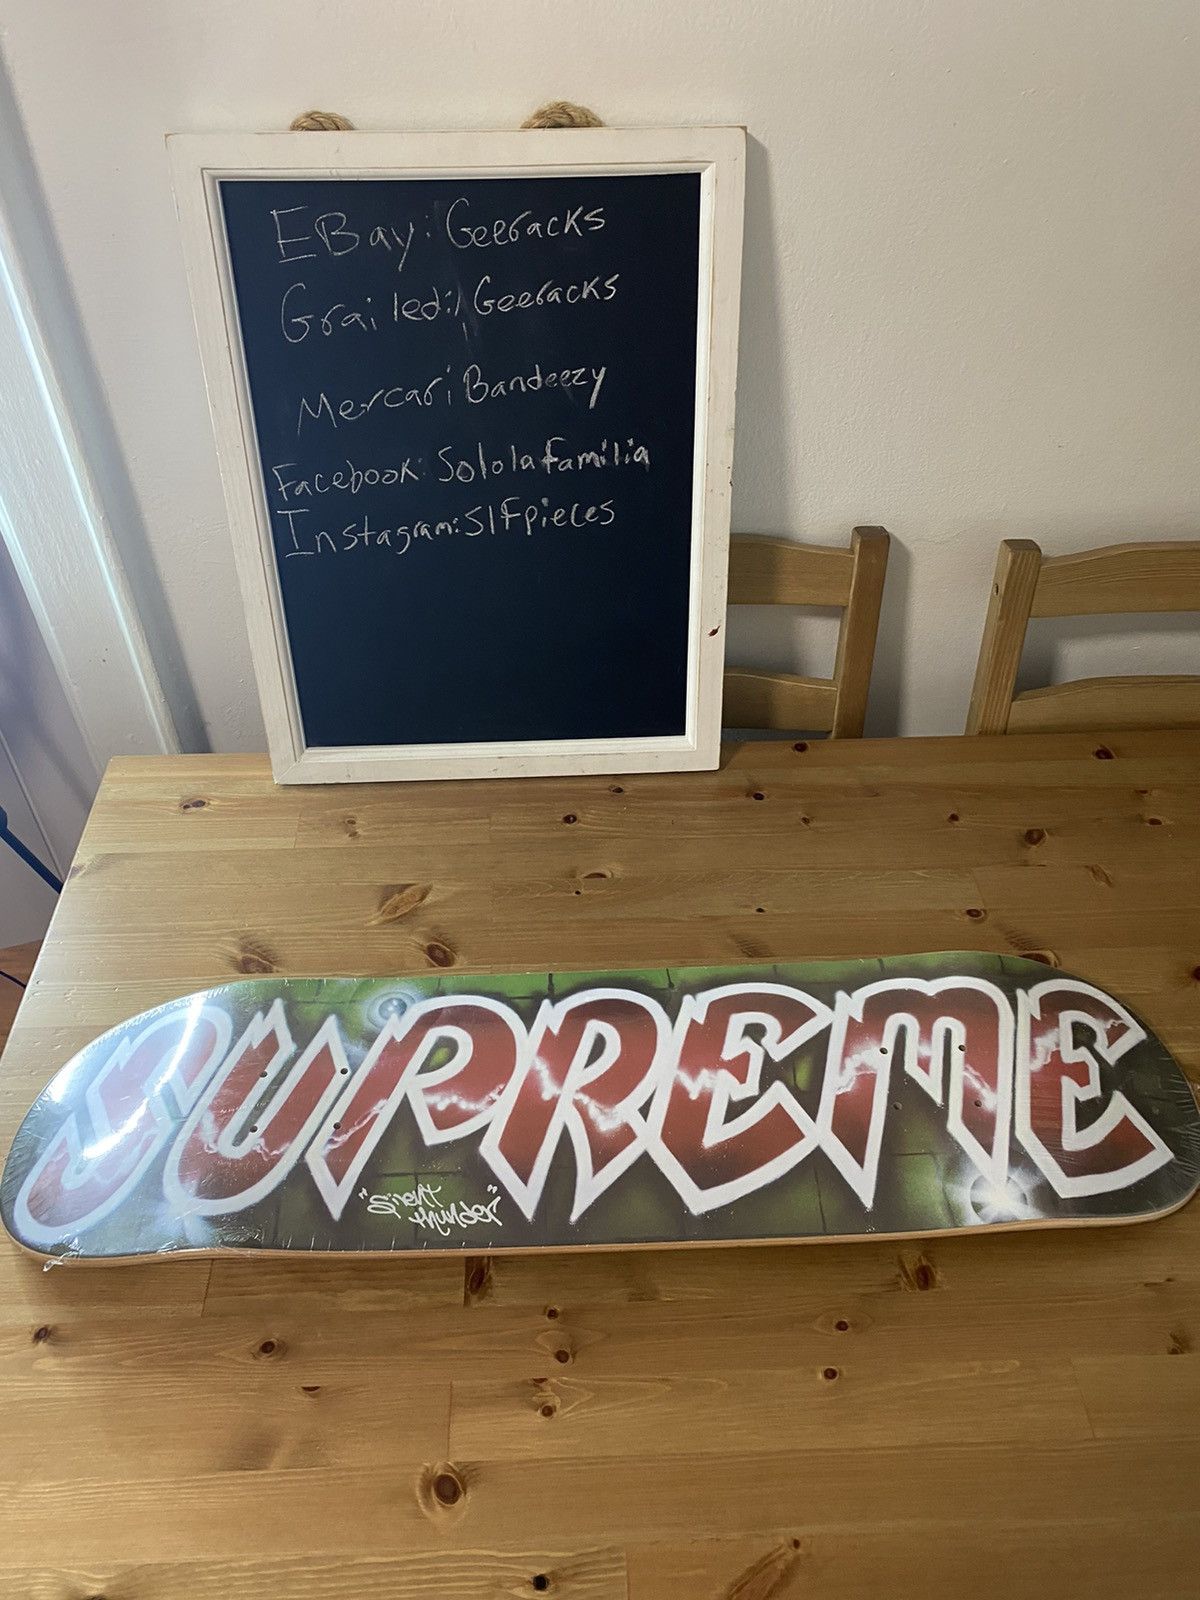 EBay: Geeracks
Grailed: Geeracks
Mercari Bandeezy
Facebook: Sololafamilia
Instagram: Slfpieces
SUPREME
"Silent
thunder"